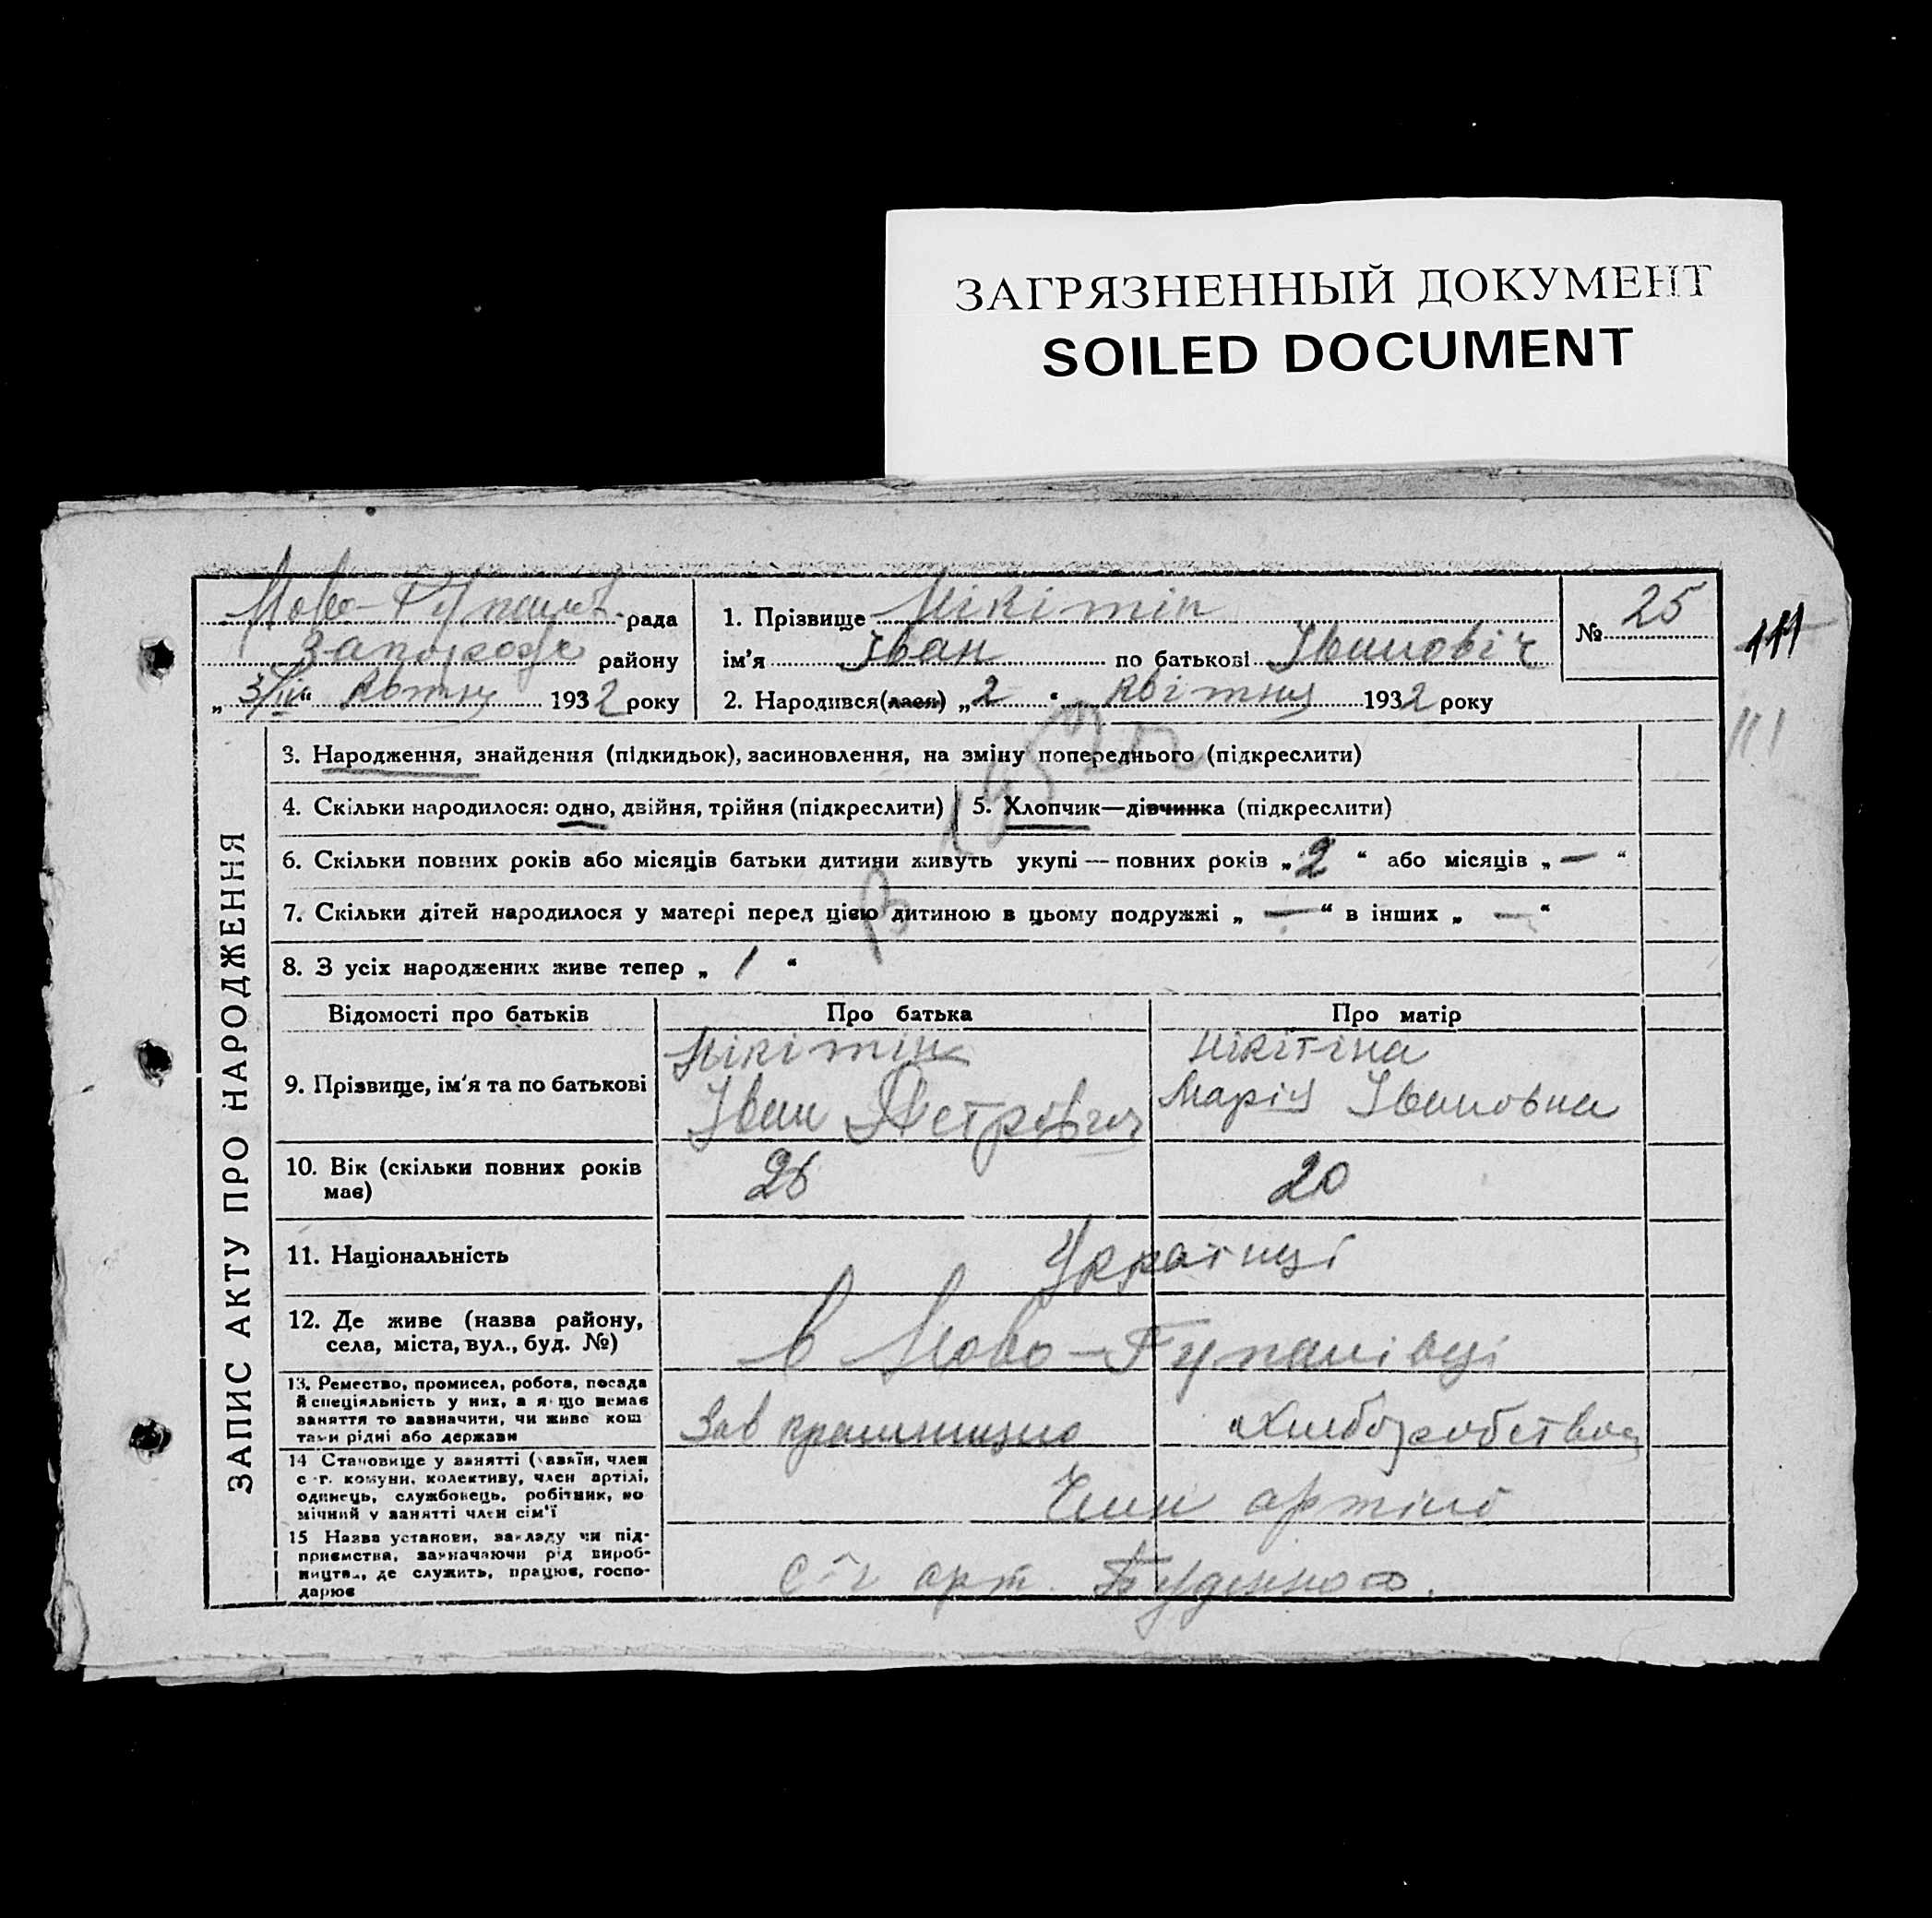 ЗАГРЯЗНЕННЫЙ ДОКУМЕНТ
SOILED DOCUMENT
рада
району
„3/IV“ 1932 року
1. Прізвище Нікітін
ім'я Іван по батькові Івановіч
2. Народився(лася) „2“ квітня 1932 року
№ 25
111
111
3. Народження, знайдення (підкидьок), засиновлення, на зміну попереднього (підкреслити)
4. Скільки народилося: одно, двійня, трійня (підкреслити)
5. Хлопчик—дівчинка (підкреслити)
6. Скільки повних років або місяців батьки дитини живуть укупі — повних років „2“ або місяців „—“
7. Скільки дітей народилося у матері перед цією дитиною в цьому подружжі „—“ в інших „—“
8. З усіх народжених живе тепер „1“
ЗАПИС АКТУ ПРО НАРОДЖЕННЯ
Відомості про батьків Про батька Про матір
9. Прізвище, ім'я та по батькові
Нікітін
Іван Петрович
Нікітіна
Марія Івановна
10. Вік (скільки повних років
має)
26 20
11. Національність Українці
12. Де живе (назва району,
села, міста, вул., буд. №)
в Ново-Гупалівці
13. Ремество, промисел, робота, посада
й спеціяльність у них, а якщо немає
заняття то зазначити, чи живе кош
тами рідні або держави
Зав
14 Становище у занятті (хазяїн, член
с.-г. комуни, колективу, член артілі,
одинець, службовець, робітник, по
мічний у занятті член сім'ї
Член артілі
15 Назва установи, закладу чи під-
приємства, зазначаючи рід вироб-
ництва, де служить, працює, госпо-
дарює
с-г арт. Буденного.